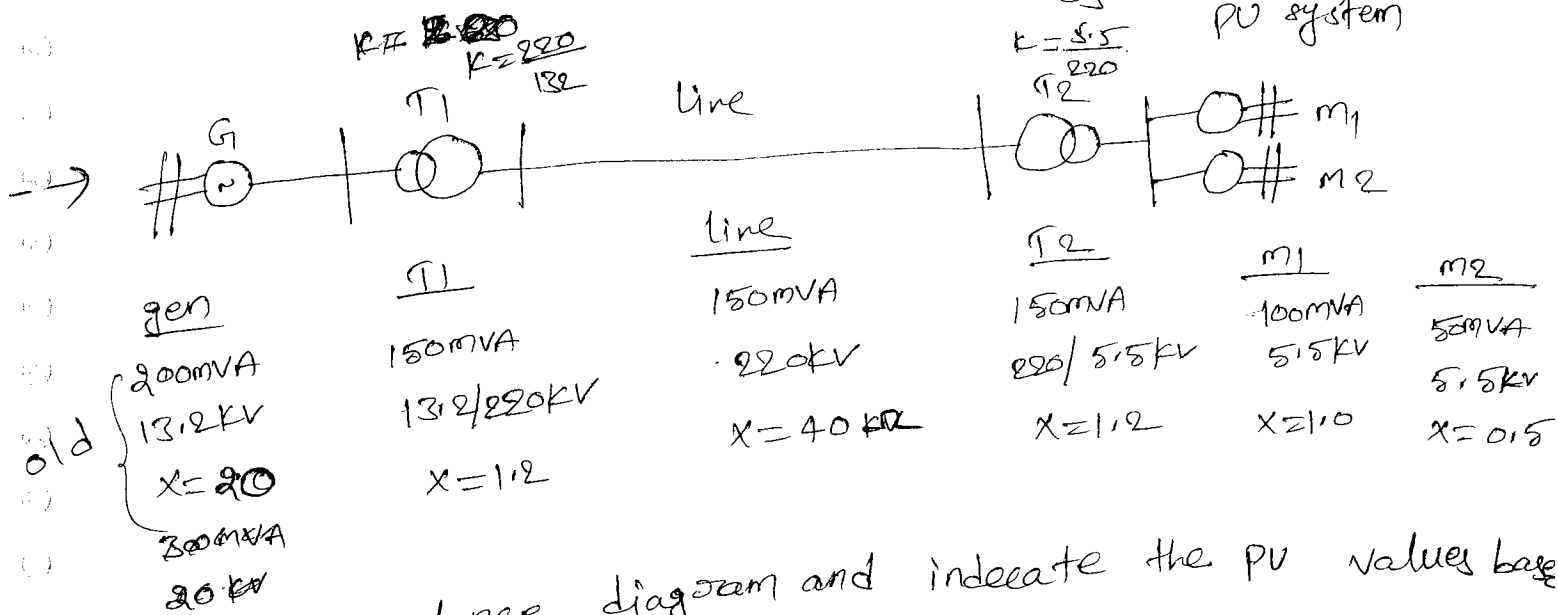 PU system
K = 220/132
K = 5.5/220
G
T1
Line
T2
M1
M2
gen
200MVA
13.2KV
X= 20
300MVA
20 KV
old
T1
150MVA
13.2/220KV
X=1.2
line
150MVA
220KV
X=40
T2
150MVA
220/5.5KV
X=1.2
M1
100MVA
5.5KV
X=1.0
M2
50MVA
5.5KV
X=0.5
diagram and indecate the PU values base